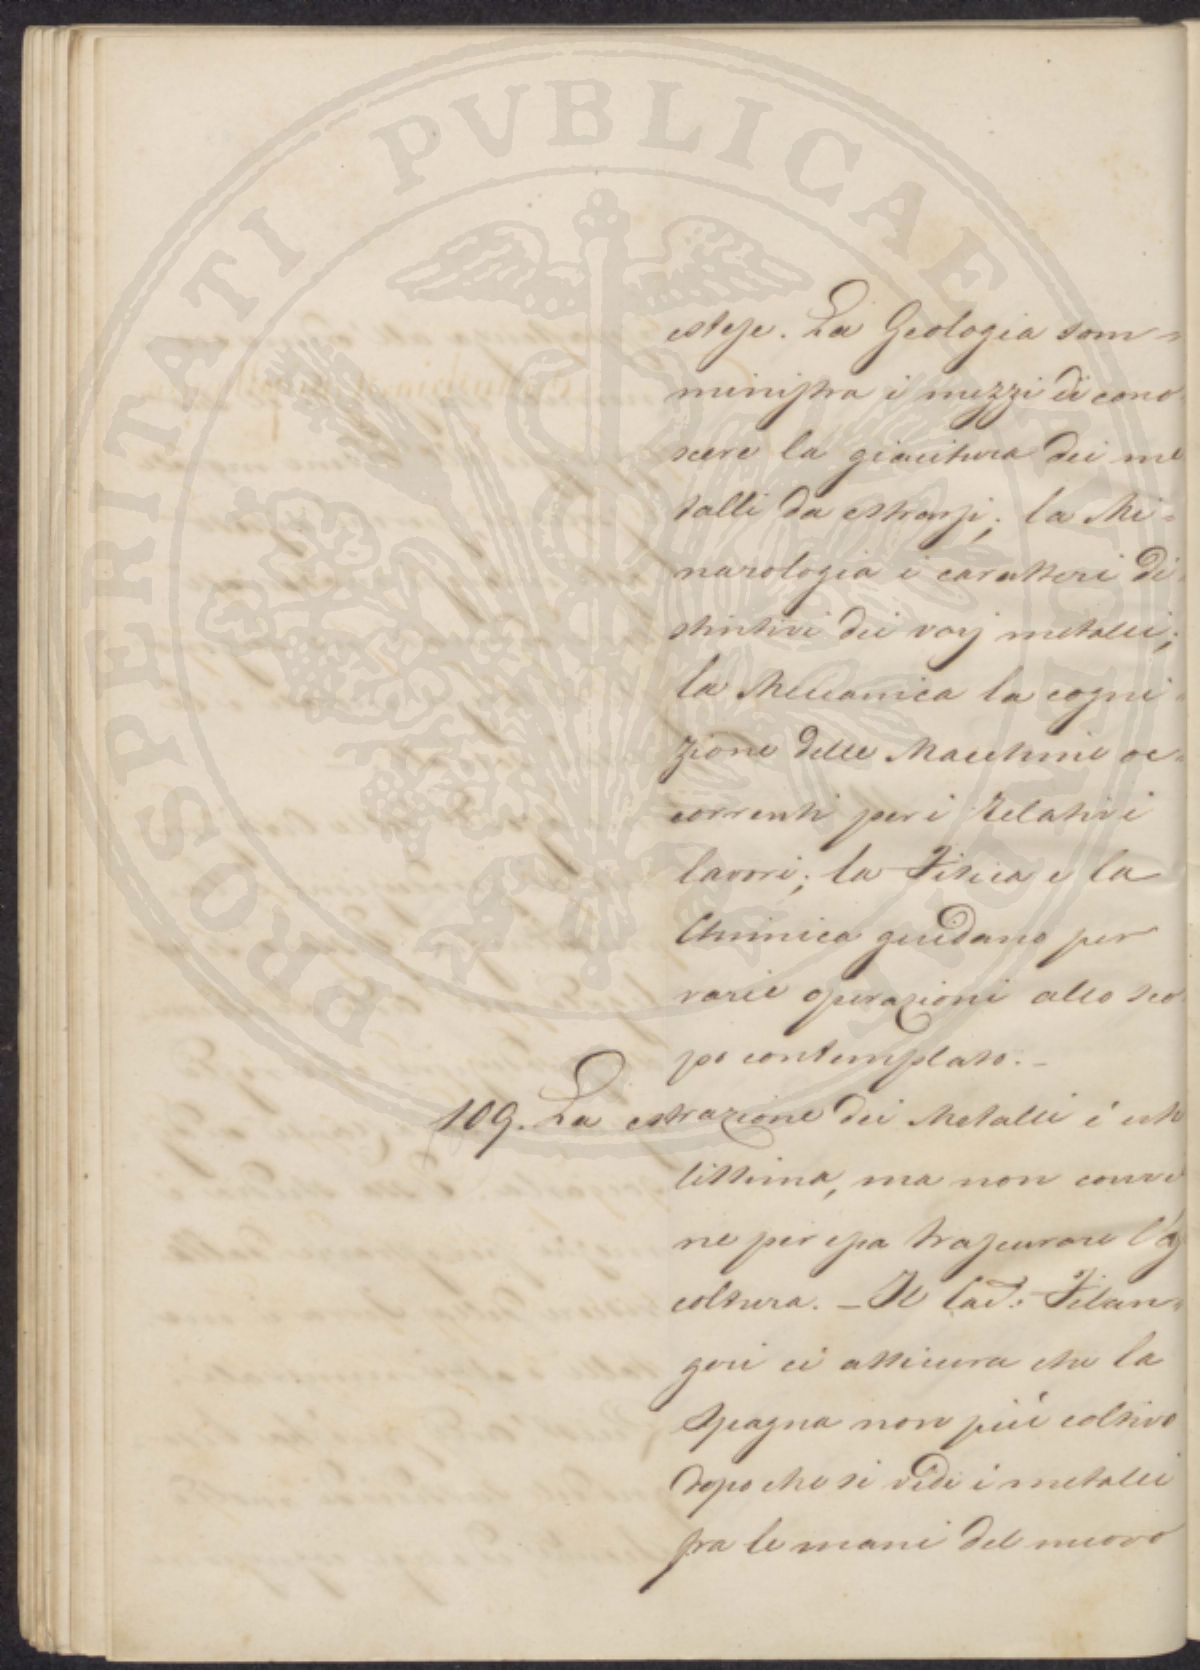 PROSPERITATI PVBLICAE
estese. La Geologia som=
ministra i mezzi di cono
scere la giacitura dei me
talli da estrarsi; la Mi=
narologia i caratteri di
stintivi dei varj metalli;
la Meccanica la cogni=
zione delle Macchine oc=
correnti per i relativi
lavori; la Fisica e la
Chimica guidano per
varie operazioni allo sco
po contemplato. _
109. La estrazione dei Metalli é uti
lissima, ma non convie
ne per essa trascurare l'ag
coltura. _ Il Cav.: Filan=
geri ci assicura che la
Spagna non piú coltivò
dopo che si vide i metalli
fra le mani del nuovo